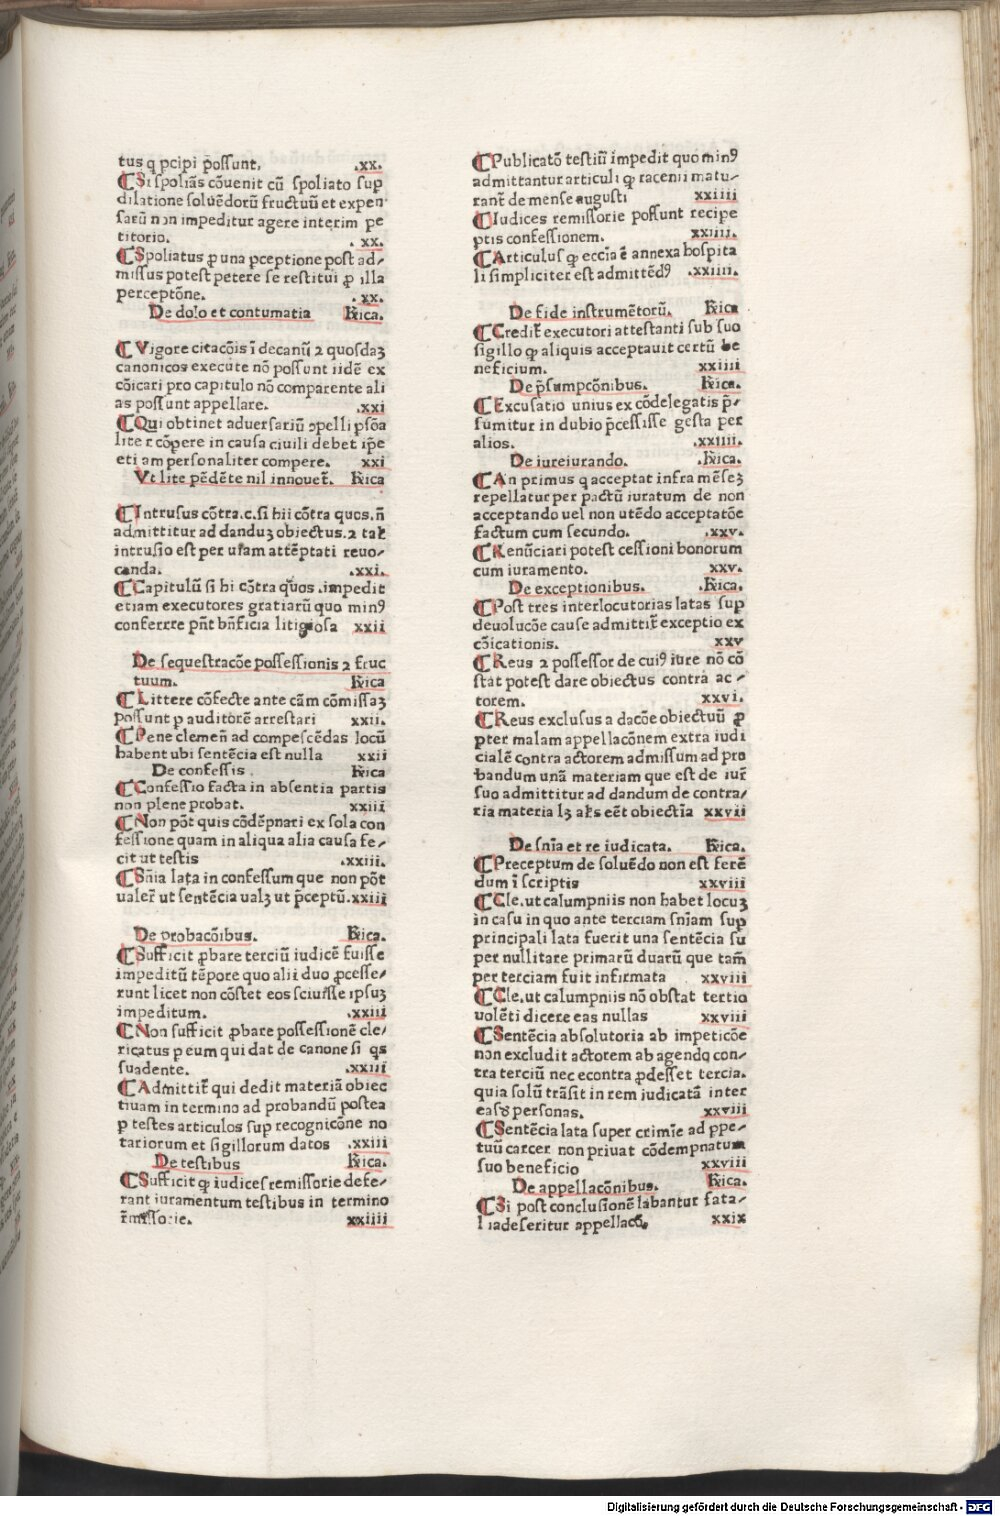 tus q pcipi p̄ossunt. .xx.
¶Si spoliās cōuenit cū spoliato sup
dilatione soluēdorū fructuū et expen
sarū non impeditur agere interim pe
titorio. . xx.
¶Spoliatus ꝓ una pceptione post ad/
missus potest petere se restitui ꝓ illa
perceptōne. . xx.
De dolo et contumatia Rꝛica.
¶Vigore citacōis ī decanū ⁊ quosdaꝫ
canonicos execute nō possunt iidē ex
cōicari pro capitulo nō comparente ali
as possunt appellare. .xxi
¶Qui obtinet aduersariū ɔpelli psōa
lite r cōpere in causa ciuili debet ip̄e
eti am personaliter compere. xxi
Vt lite pēdēte nil innouet̄. Rꝛica
¶Intrusus cōtra.c.si hii cōtra quos.n̄
admittitur ad danduꝫ obiectus.⁊ tal̄
intrusio est per uiam attēptati reuo/
canda. .xxi.
¶Capitulū si hi cōtra quos .impedit
etiam executores gratiarū quo minꝰ
conferrre pn̄t bn̄ficia litigiosa xxii
De sequestracōe possessionis ⁊ fruc
tuum. Rꝛica
¶Littere cōfecte ante cām cōmissaꝫ
possunt p auditorē arrestari xxii.
¶Pene clemen̄ ad compescēdas locū
habent ubi sentēcia est nulla xxii
De confessis . Rꝛica
¶Confessio facta in absentia partis
non plene probat. xxiii
¶Non pōt quis cōdēpnari ex sola con
fessione quam in aliqua alia causa fe/
cit ut testis .xxiii.
¶Sn̄ia lata in confessum que non pōt
ualer̄ ut sentēcia ualꝫ ut p̄ceptū.xxiii
De probacōibus. Rꝛica.
¶Sufficit ꝓbare terciū iudicē fuisse
impeditū tēpore quo alii duo ꝓcesse/
runt licet non cōstet eos sciuisse ipsuꝫ
impeditum. .xxiii
¶Non sufficit ꝓbare possessionē cle/
ricatus p eum qui dat de canone si qs
suadente. .xxiii
¶Admittit̄ qui dedit materiā obiec
tiuam in termino ad probandū postea
p testes articulos sup recognicōne no
tariorum et sigillorum datos .xxiii
De testibus Rꝛica.
¶Sufficit ꝙ iudices remissorie defe/
rant iuramentum testibus in termino
r̄missorie. xxiiii
¶Publicatō testiū impedit quo minꝰ
admittantur articuli ꝙ racemi matu/
rant̄ de mense augusti xxiiii
¶Iudices remissorie possunt recipe
ptis confessionem. xxiiii.
¶Articulus ꝙ eccia ē annexa hospita
li simpliciter est admittēdꝰ .xxiiii.
De fide instrumētorū. Rꝛica
¶Credit̄ executori attestanti sub suo
sigillo ꝙ aliquis acceptauit certū be
neficium. xxiiii
De p̄sumpcōnibus. Rꝛica.
¶Excusatio unius ex cōdelegatis p̄/
sumitur in dubio p̄cessisse gesta per
alios. .xxiiii.
De iureiurando. .Rꝛica.
¶An primus q acceptat infra mēseꝫ
repellatur per pactū iuratum de non
acceptando uel non utēdo acceptatōe
factum cum secundo. .xxv.
¶Renūciari potest cessioni bonorum
cum iuramento. xxv.
De exceptionibus. .Rꝛica.
¶Post tres interlocutorias latas sup
deuolucōe cause admittit̄ exceptio ex
cōicationis. xxv
¶Reus ⁊ possessor de cuiꝰ iure nō cō
stat potest dare obiectus contra ac/
torem. xxvi.
¶Reus exclusus a dacōe obiectuū ꝓ
pter malam appellacōnem extra iudi
cialē contra actorem admissum ad pro
bandum unā materiam que est de iur̄
suo admittitur ad dandum de contra/
ria materia lꝫ al̄s eēt obiectīa xxvii
De sn̄ia et re iudicata. Rꝛica.
¶Preceptum de soluēdo non est ferē
dum ī scriptis xxviii
¶Cle.ut calumpniis non habet locuꝫ
in casu in quo ante terciam sn̄iam sup
principali lata fuerit una sentēcia su
per nullitare primarū duarū que tam̄
per terciam fuit infirmata xxviii
¶Cle.ut calumpniis nō obstat tertio
uolēti dicere eas nullas xxviii
¶Sentēcia absolutoria ab impeticōe
non excludit actorem ab agendo con/
tra terciū nec econtra ꝓdesset tercia.
quia solū trāsit in rem iudicatā inter
easꝺ personas. xxviii
¶Sentēcia lata super crimīe ad ppe/
tuū carcer non priuat cōdempnatum
suo beneficio xxviii
De appellacōnibus. Rꝛica.
¶Si post conclusionē labantur fata/
l iadeseritur appellacō. xxix
Digitalisierung gefördert durch die Deutsche Forschungsgemeinschaft - DFG